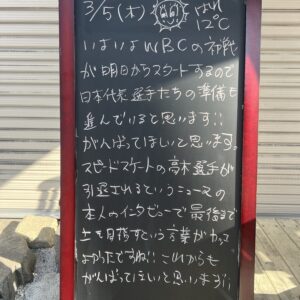 3/5(木) はれ
12℃
いよいよWBCの初戦
が明日からスタートするので
日本代表選手たちの準備も
進んでいると思います!!
がんばってほしいと思います。
スピードスケートの高木選手が
引退されるというニュースの
本人のインタビューで最後まで
上を目指すという言葉がカッコ
よかったですね!! これからも
がんばってほしいと思います!!